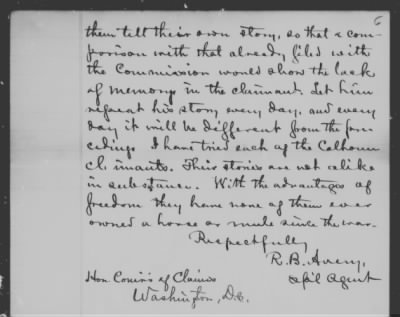 6
them tell their own story, so that a com-
parison with that already filed with
the Commission would show the lack
of memory in the claimant. Let him
repeat his story every day, and every
day it will be different from the pre-
ceding. I have tried each of the Calhoun
claimants. Their stories are not alike
in substance. With the advantages of
freedom they have none of them ever
owned a horse or mule since the war.
Respectfully
R. B. Avery,
Spl Agent
Hon. Com'rs of Claims
Washington, D.C.